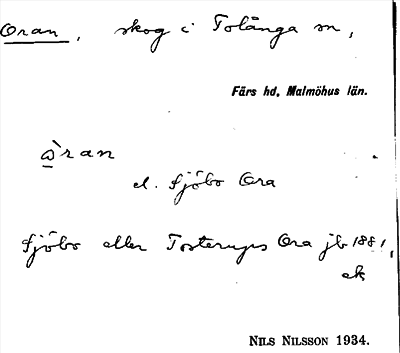 Oran, skog i Tolånga sn,
Färs hd. Malmöhus län.
ὼran
el. Sjöbo Ora
Sjöbo eller Tosterups Ora jb 1881,
ek
Nils Nilsson 1934.